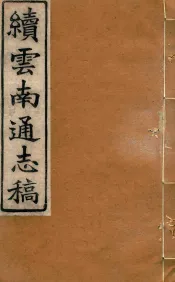 續雲南通志稿